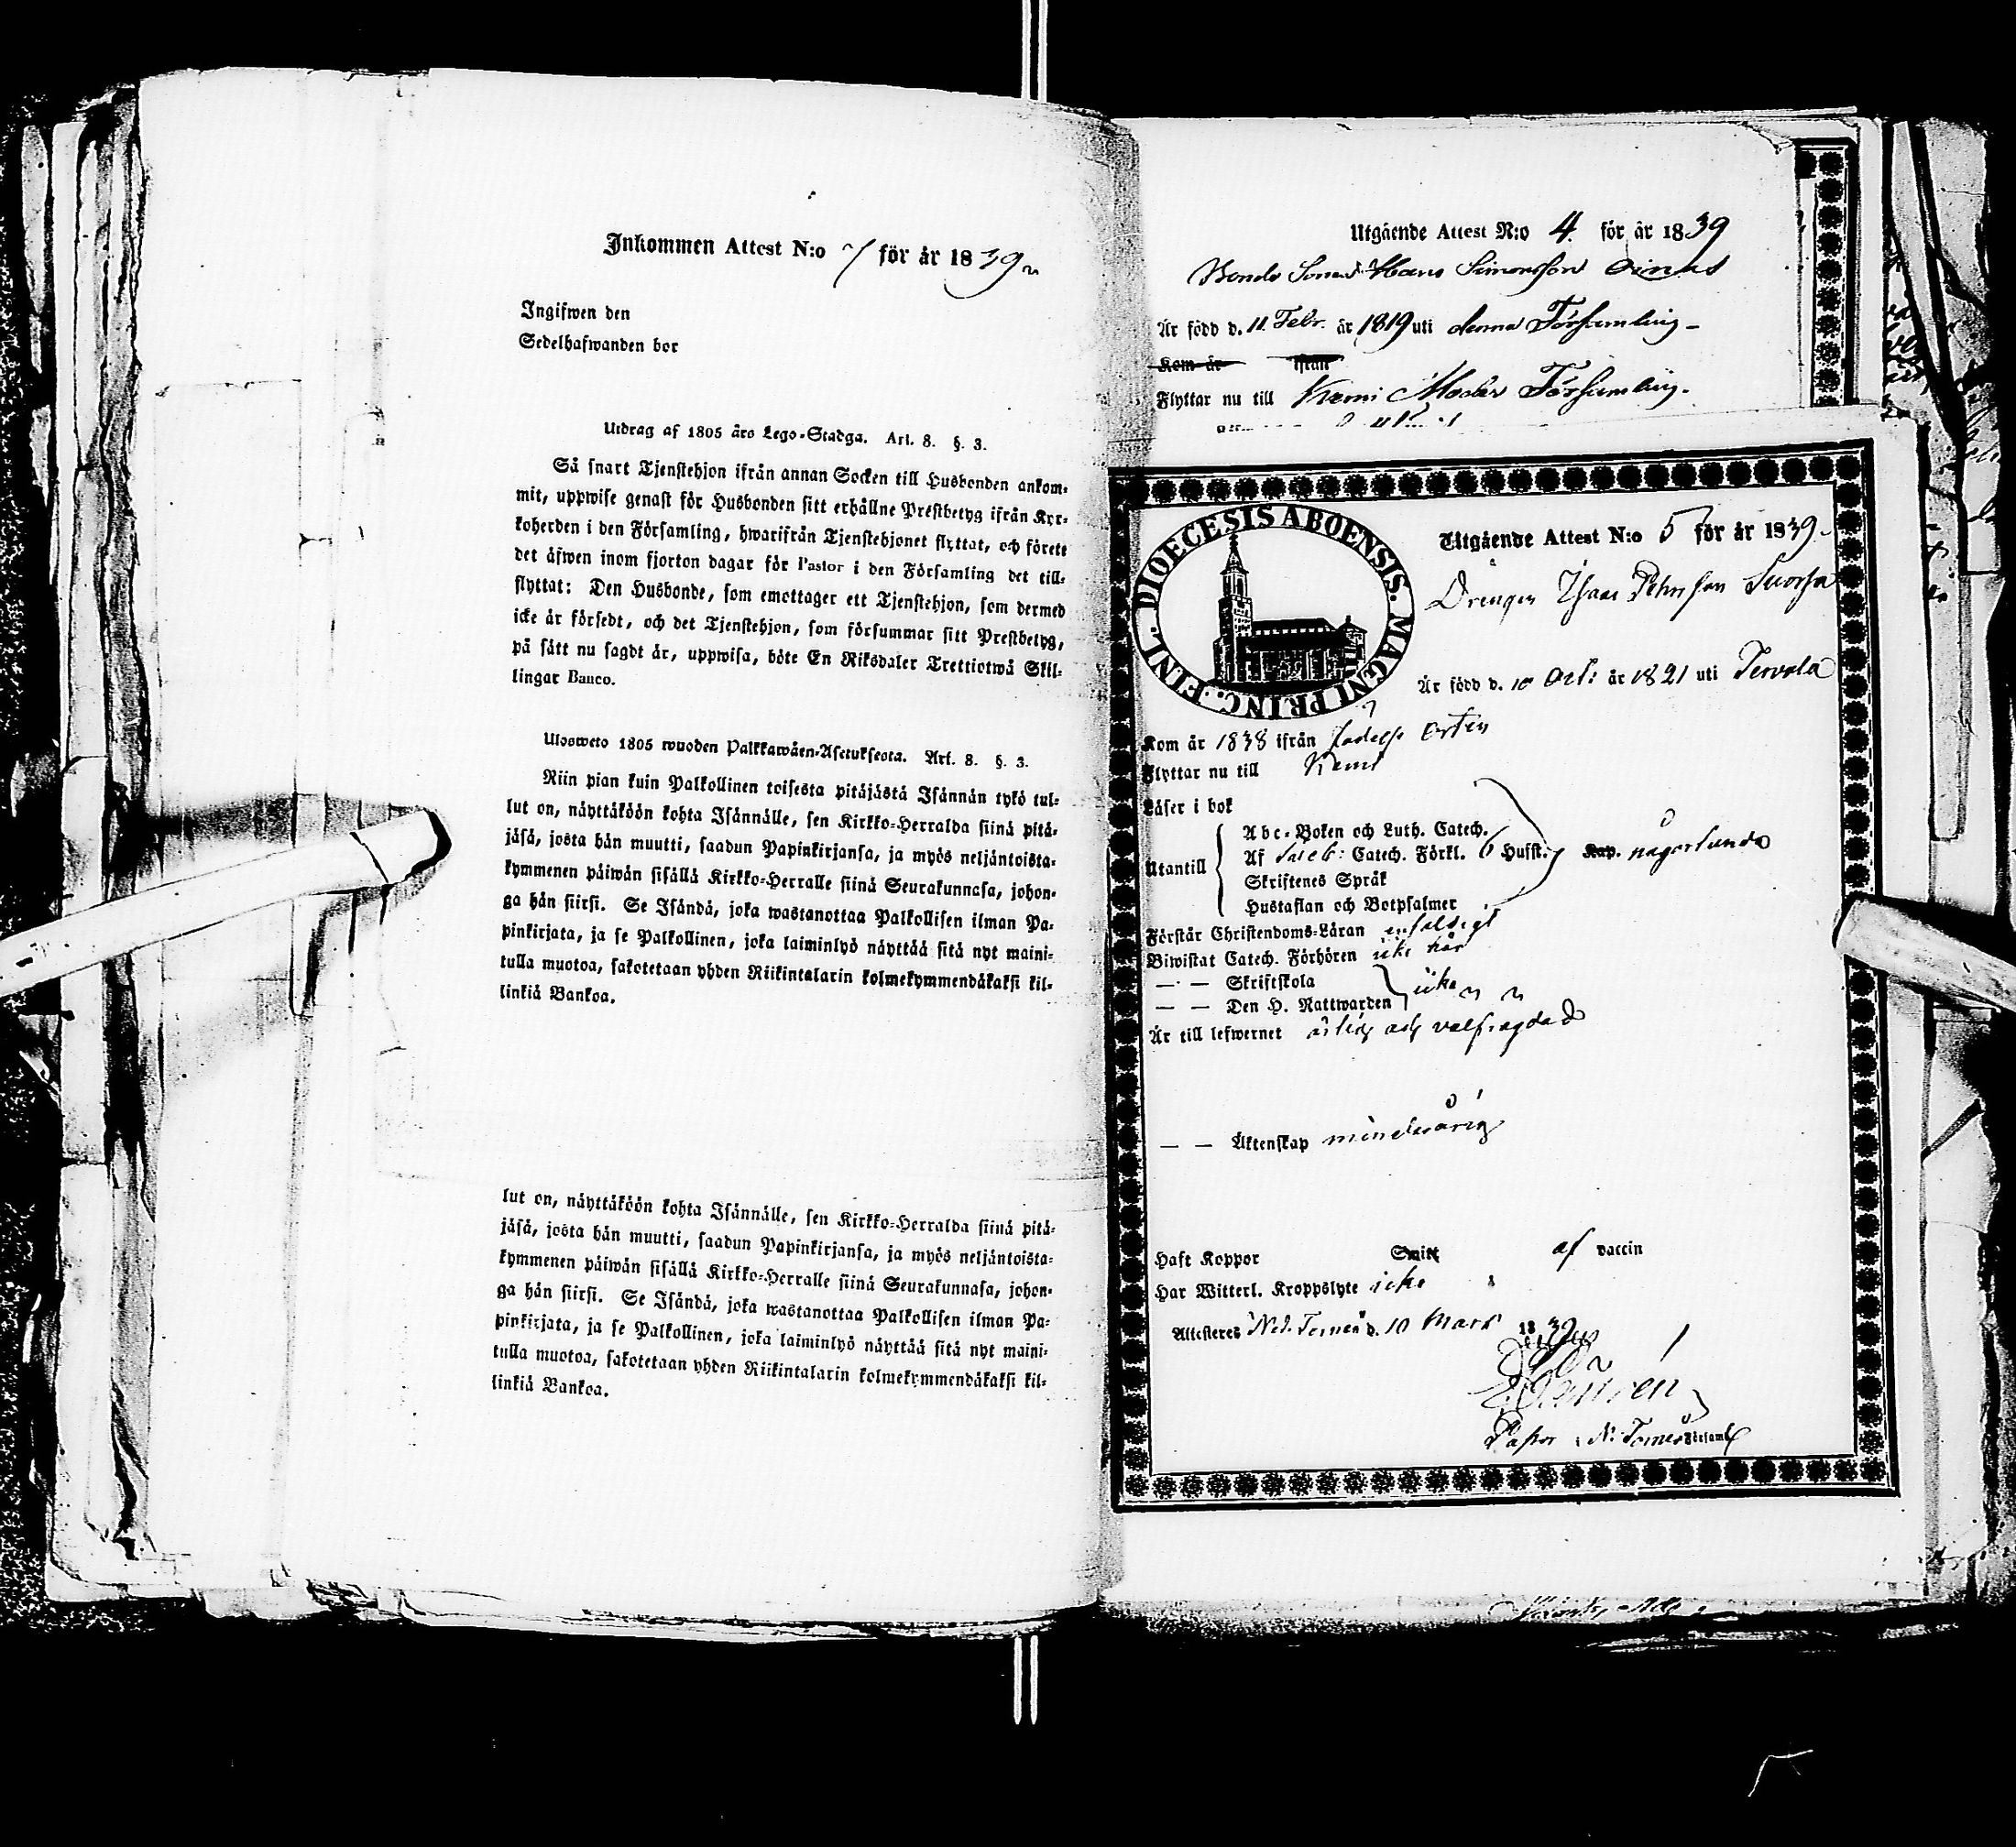 Inkommen Attest N:o 7 för år 1839
Ingifwen den
Sedelhafwanden bor
Utdrag af 1805 års Lego-Stadga. Art. 8. §. 3.
Så snart Tjenstehjon ifrån annan Socken till Husbonden ankom-
mit, uppwise genast för Husbonden sitt erhållne Prestbetyg ifrån Kyr-
koherden i den Församling, hwarifrån Tjenstehjonet flyttat, och förete
det äfwen inom fjorton dagar för Pastor i den Församling det till-
flyttat: Den Husbonde, som emottager ett Tjenstehjon, som dermed
icke är försedt, och det Tjenstehjon, som försummar sitt Prestbetyg,
på sätt nu sagdt är, uppwisa, böte En Riksdaler Trettiotwå Skil-
lingar Banco.
Ulosweto 1805 wuoden Palkkawäen-Asetuksesta. Art. 8. §. 3.
Niin pian kuin Palkollinen toisesta pitäjästä Isännän tykö tul-
lut on, näyttäköön kohta Isännälle, sen Kirkko-Herralda siinä pitä-
jäsä, josta hän muutti, saadun Papinkirjansa, ja myös neljäntoista-
kymmenen päiwän sisällä Kirkko-Herralle siinä Seurakunnasa, johon-
ga hän siirsi. Se Isändä, joka wastanottaa Palkollisen ilman Pa-
pinkirjata, ja se Palkollinen, joka laiminlyö näyttää sitä nyt maini-
tulla muotoa, sakotetaan yhden Riikintalarin kolmekymmendäkaksi kil-
linkiä Bankoa.
lut on, näyttäköön kohta Isännälle, sen Kirkko-Herralda siinä pitä-
jäsä, josta hän muutti, saadun Papinkirjansa, ja myös neljäntoista-
kymmenen päiwän sisällä Kirkko-Herralle siinä Seurakunnasa, johon-
ga hän siirsi. Se Isändä, joka wastanottaa Palkollisen ilman Pa-
pinkirjata, ja se Palkollinen, joka laiminlyö näyttää sitä nyt maini-
tulla muotoa, sakotetaan yhden Riikintalarin kolmekymmendäkaksi kil-
linkiä Bankoa.
Utgående Attest N:o 4. för år 1839
Bonde Sonen Hans Simonsson Oinas
Är född d. 11 Febr. år 1819 uti denna Församling
Kom år ifrån
Flyttar nu till Kemi Moder Församling.
DIOECESIS ABOENSIS. MAGNI PRINC. FINL.
Utgående Attest N:o 5 för år 1839
Drengen Isaac Petersson Suorsa
Är född d. 10 Oct: år 1821 uti Tervola
Kom år 1838 ifrån födelse orten
Flyttar nu till Kemi
Läser i bok
Abc-Boken och Luth. Catech.
Utantill Af Sveb: Catech. Förkl. 6 Hufst. Kap. någorlunda
Skriftenes Språk
Hustaflan och Botpsalmer
Förstår Christendoms-Läran enfaldigt
Biwistat Catech. Förhören icke här
— — Skriftskola icke
— — Den H. Nattwarden
Är till lefwernet ärlig och välfrägdad
— — Äktenskap minderårig
Haft Koppor Smitt af vaccin
Har Witterl. Kroppslyte icke
Attesteres Ned. Torneå d. 10 Mars 1839
Pastor i N: Torneå församl